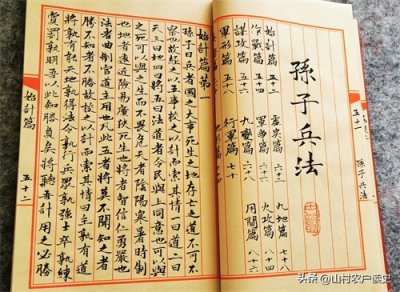 孫子兵法
五十一
孫子兵法
作戰篇
謀攻篇 五十四
軍形篇
虛實篇 六十三
軍爭篇 六十六
九變篇 六十八
行軍篇 七十
九地篇 七十八
火攻篇 八十四
用間篇 八十六
始計篇第一
孫子曰兵者國之大事死生之地存亡之道不可不
察也故經之以五事校之以計而索其情一曰道二曰
天三曰地四曰將五曰法道者令民與上同意也可以與
之死可以與之生而不畏危天者陰陽寒暑時制
也地者遠近險易廣狹死生也將者智信仁勇嚴也
法者曲制官道主用也凡此五者將莫不聞知之者
勝不知者不勝故校之以計而索其情曰主孰有道
將孰有能天地孰得法令孰行兵眾孰強士卒孰練
賞罰孰明吾以此知勝負矣將聽吾計用之必勝
始計篇 五十二
头条 @山村农户读史